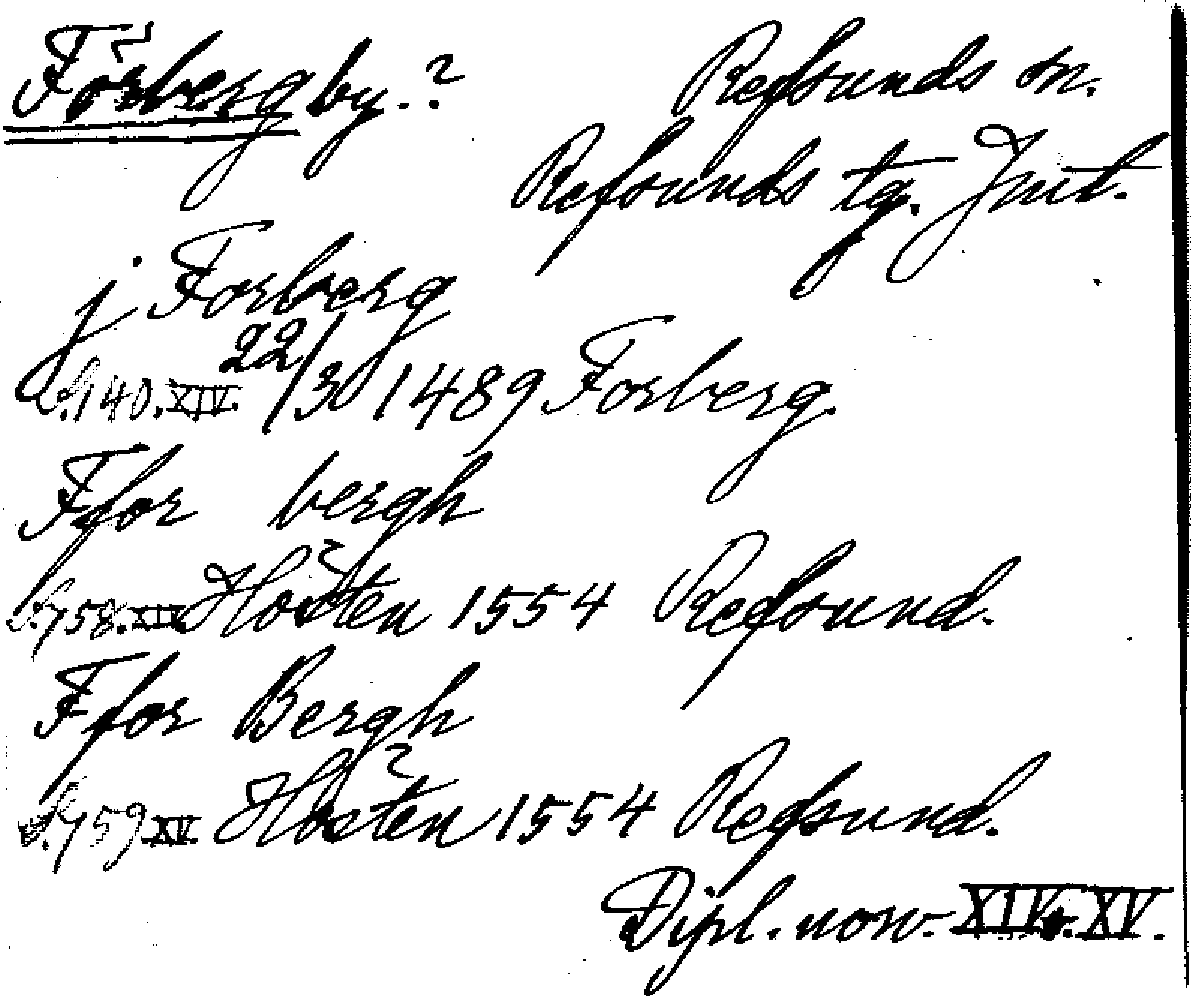 Förberg by.? Refsunds sn.
Refsunds tg. Jmt.
j Forberg
S. 140. XIV. 22/3 1489 Forberg.
Ffor bergh
S. 758. XIV. Hösten 1554 Refsund.
Ffor Bergh
S. 759 XV. Hösten 1554 Refsund.
Dipl. norv. XIV o. XV.